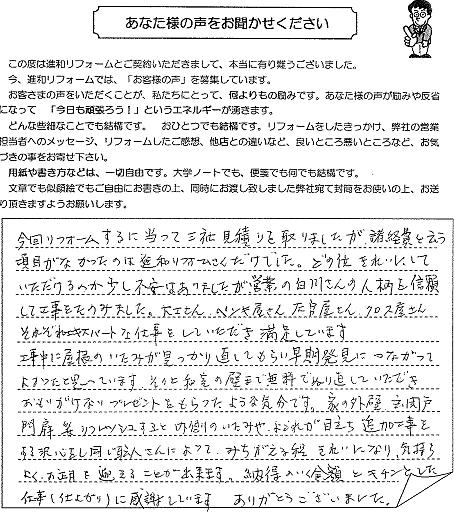 あなた様の声をお聞かせください
この度は進和リフォームとご契約いただきまして、本当に有り難うございました。
今、進和リフォームでは、「お客様の声」を募集しています。
お客さまの声をいただくことが、私たちにとって、何よりもの励みです。あなた様の声が励みや反省
になって　「今日も頑張ろう！」というエネルギーが湧きます。
どんな些細なことでも結構です。　おひとつでも結構です。リフォームをしたきっかけ、弊社の営業
担当者へのメッセージ、リフォームしたご感想、他店との違いなど、良いところ悪いところなど、お気
づきの事をお寄せ下さい。
用紙や書き方などは、一切自由です。大学ノートでも、便箋でも何でも結構です。
文章でも似顔絵でもご自由にお書きの上、同時にお渡し致しました弊社宛て封筒をお使いの上、お送
り頂きますようお願いします。
今回リフォームするに当って三社見積りを取りましたが、諸経費と云う
項目がなかったのは進和リフォームさんだけでした。どの位きれいにして
いただけるのか少し不安はありましたが営業の白川さんの人柄を信頼
して工事をたのみました。大工さん ペンキ屋さん 左官屋さん クロス屋さん
それぞれエキスパートな仕事をしていただき満足しています
工事中に屋根のいたみが見つかり直してもらい早期発見につながって
よかったと思っています。それと和室の壁まで無料でぬり直していただき
おもいがけないプレゼントをもらったような気分です。家の外壁 玄関戸
門扉 等リフレッシュすると内側のいたみや、よごれが目立ち 追加工事を
する決心をし同じ職人さんによって、みちがえる程 きれいになり、気持ち
よくお正月を迎えることが出来ます。納得のいく金額とキチンとした
仕事(仕上がり)に感謝しています　ありがとうございました。